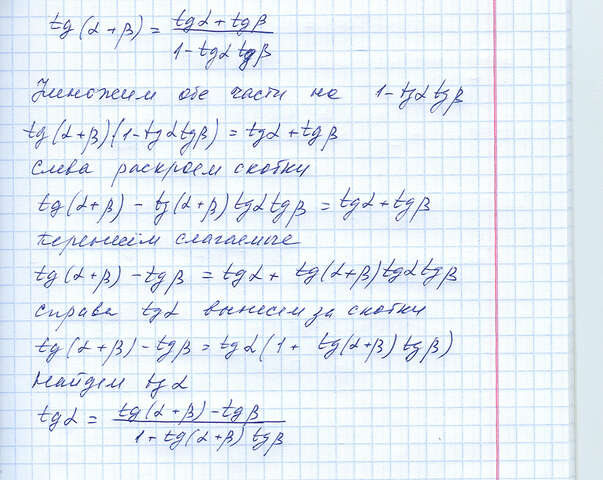 tg(α+β) = (tgα + tgβ) / (1 - tgα tgβ)
Умножим обе части на 1 - tgα tgβ
tg(α+β)(1 - tgα tgβ) = tgα + tgβ
слева раскроем скобки
tg(α+β) - tg(α+β) tgα tgβ = tgα + tgβ
перенесём слагаемые
tg(α+β) - tgβ = tgα + tg(α+β) tgα tgβ
справа tgα вынесем за скобки
tg(α+β) - tgβ = tgα (1 + tg(α+β) tgβ)
Найдем tgα
tgα = (tg(α+β) - tgβ) / (1 + tg(α+β) tgβ)